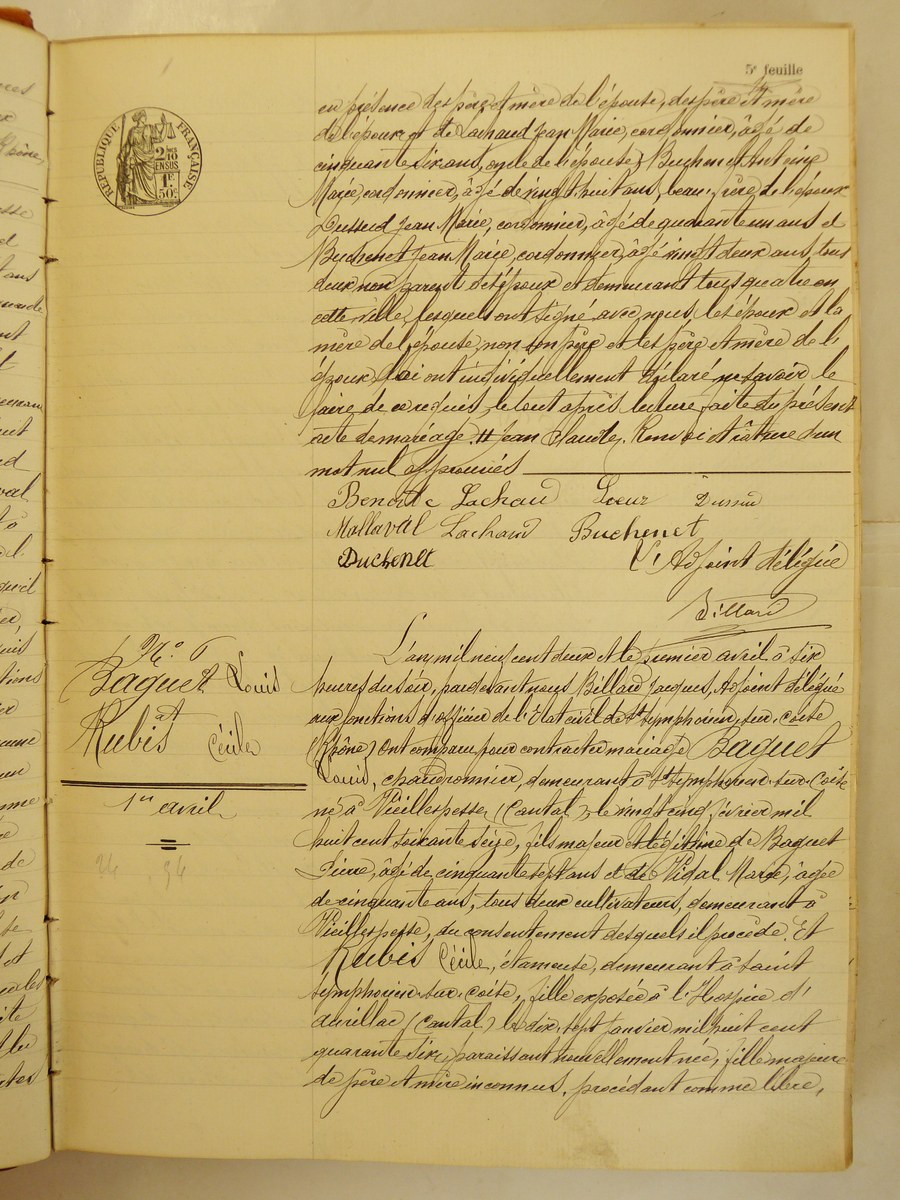 5e feuille
RÉPUBLIQUE FRANÇAISE
2 10es
EN SUS
1F.
50c.
en présence des père et mère de l'épouse, des père et mère
de l'époux et de Lachaud Jean Marie, cordonnier, âgé de
cinquante six ans, oncle de l'épouse; Buchenet Antoine
Marie, cordonnier, âgé de vingt huit ans, beau-frère de l'époux
Dussud Jean Marie, cordonnier, âgé de quarante un ans et
Buchenet Jean Marie, cordonnier, âgé vingt deux ans, tous
deux non parent des époux et demeurant tous quatre en
cette ville, lesquels ont signé avec nous, les époux et la
mère de l'épouse, non son père et les père et mère de l'
époux qui ont individuellement déclaré ne savoir le
faire de ce requis, le tout après lecture faite du présent
acte de mariage. # Jean Claude. Renvoi et rature d'un
mot nul approuvés
Benoite Lachaud Dussud
Mallaval Lachaud Buchenet
Buchenet L'Adjoint délégué
Billard
No 6
Baguet Louis
et
Rubis Cécile
1er avril
L'an mil neuf cent deux et le premier avril à six
heures du soir, pardevant nous Billard Jacques, Adjoint délégué
aux fonctions d'officier de l'Etat civil de St Symphorien-sur-Coise
(Rhône) Ont comparu pour contracter mariage Baguet
Louis, chaudronnier, demeurant à St Symphorien-sur-Coise
né à Vieillespesse, (Cantal) le vingt cinq février mil
huit cent soixante seize, fils majeur et légitime de Baguet
Pierre, âgé de cinquante sept ans et de Vidal Marie, âgée
de cinquante ans, tous deux cultivateurs, demeurant à
Vieillespesse, du consentement desquels il procède, Et
Rubis Cécile, étameuse, demeurant à Saint
Symphorien-sur-Coise, fille exposée à l'Hospice d'
Aurillac (Cantal) le dix-sept janvier mil huit cent
quarante six, paraissant nouvellement née, fille majeure
de père et mère inconnus, procédant comme libre,